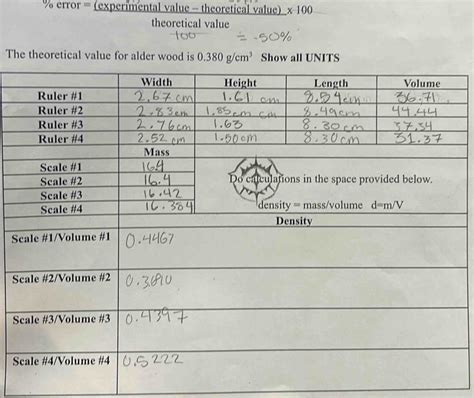 % error = (experimental value – theoretical value) x 100
theoretical value
-100 = -50%
The theoretical value for alder wood is 0.380 g/cm³ Show all UNITS
Width Height Length Volume
Ruler #1 2.67cm 1.61 cm 8.54cm 36.71
Ruler #2 2.83cm 1.85cm cm 8.49cm 44.44
Ruler #3 2.76cm 1.63 8.30cm 37.34
Ruler #4 2.52cm 1.50cm 8.30cm 31.37
Mass
Scale #1 16.4
Scale #2 16.4 Do calculations in the space provided below.
Scale #3 16.42
Scale #4 16.384 density = mass/volume d=m/V
Density
Scale #1/Volume #1 0.4467
Scale #2/Volume #2 0.3690
Scale #3/Volume #3 0.4397
Scale #4/Volume #4 0.5222